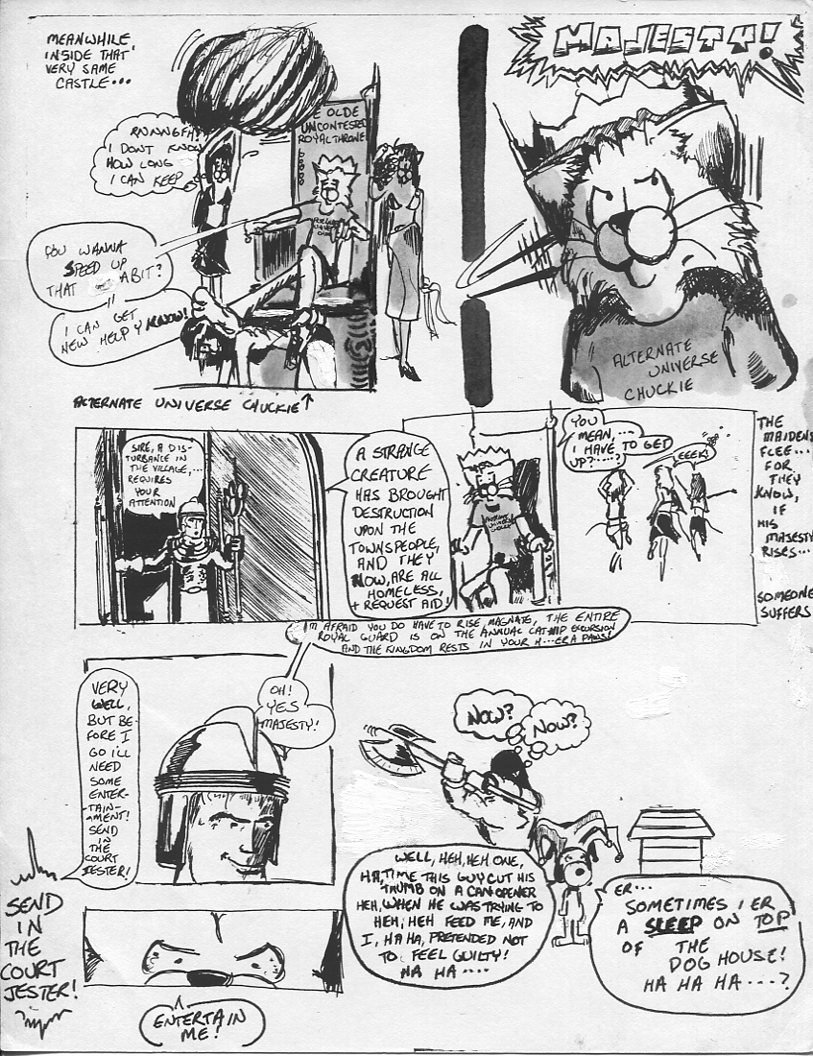 MEANWHILE
INSIDE THAT
VERY SAME
CASTLE...
RNNNGFH!
I DONT KNOW
HOW LONG
I CAN KEEP
YE OLDE
UNCONTESTED
ROYAL THRONE
DO U WANNA
SPEED UP
THAT A BIT?
I CAN GET
NEW HELP Y'KNOW!
ALTERNATE UNIVERSE CHUCKIE ↑
MAJESTY!
ALTERNATE
UNIVERSE
CHUCKIE
SIRE, A DIS-
TURBANCE IN
THE VILLAGE,...
REQUIRES
YOUR
ATTENTION
A STRANGE
CREATURE
HAS BROUGHT
DESTRUCTION
UPON THE
TOWNSPEOPLE,
AND THEY
NOW, ARE ALL
HOMELESS,
+ REQUEST AID!
YOU
MEAN,...
I HAVE TO GET
UP?....?
EEEK!
THE
MAIDENS
FLEE...
FOR
THEY
KNOW,
IF
HIS
MAJESTY
RISES...
SOMEONE
SUFFERS
I'M AFRAID YOU DO HAVE TO RISE, MAGNATE, THE ENTIRE
ROYAL GUARD IS ON THE ANNUAL CATNIP EXCURSION
AND THE KINGDOM RESTS IN YOUR H...ER A PAWS!
VERY
WELL,
BUT BE-
FORE I
GO I'LL
NEED
SOME
ENTER-
TAIN-
MENT!
SEND
IN THE
COURT
JESTER!
OH!
YES
MAJESTY!
SEND
IN
THE
COURT
JESTER!
ENTERTAIN
ME!
NOW?
NOW?
WELL, HEH, HEH ONE,
HA, TIME THIS GUY CUT HIS
THUMB ON A CAN OPENER
HEH, WHEN HE WAS TRYING TO
HEH, HEH FEED ME, AND
I, HA HA, PRETENDED NOT
TO FEEL GUILTY!
HA HA....
ER...
SOMETIMES I ER
A SLEEP ON TOP
OF THE
DOG HOUSE!
HA HA HA...?